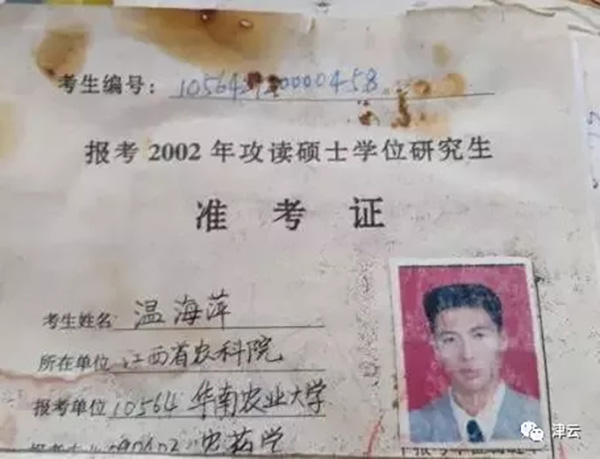 考生编号： 10564 0000458
报考 2002 年攻读硕士学位研究生
准考证
考生姓名 温海萍
所在单位 江西省农科院
报考单位 10564 华南农业大学
农药学
津云